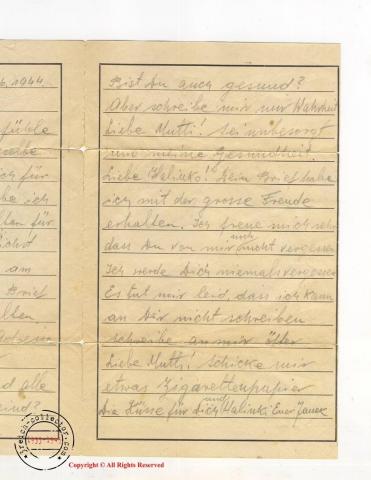 6.1944.
fühle
ich für
be ich
ten für
am
Brief
lten.
nd alle
sind?
Bist Du auch gesund?
Aber schreibe mir nur Wahrheit
Liebe Mutti! Sei unbesorgt
um meine Gesundheit.
Liebe Halinko! Dein Brief habe
ich mit der grosse Freude
erhalten. Ich freue mich sehr
dass Du von mir nicht vergessen
Ich werde Dich niemals vergessen
Es tut mir leid, dass ich kann
an Dir nicht schreiben
schreibe an mir öfter
Liebe Mutti! Schicke mir
etwas Zigarettenpapier
Die Küsse für Dich und Halinki Euer Janek
reich-collector.com
1933-1945
Copyright © All Rights Reserved